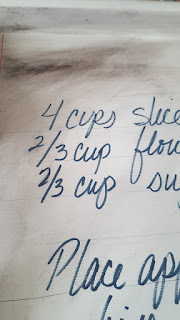 4 cups slice
2/3 cup flou
2/3 cup su
Place app